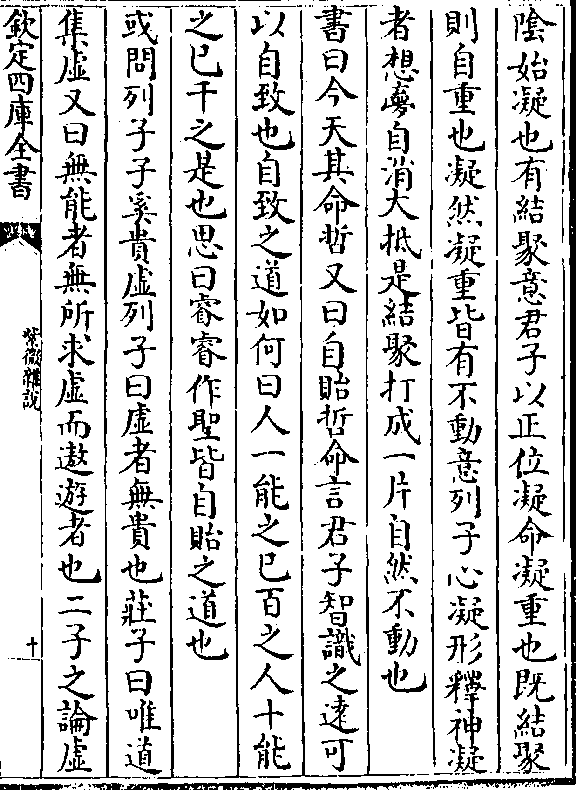 陰始凝也有結聚意君子以正位凝命凝重也既結聚
則自重也凝然凝重皆有不動意列子心凝形釋神凝
者想夢自消大抵是結聚打成一片自然不動也
書曰今天其命哲又曰自貽哲命言君子智識之逺可
以自致也自致之道如何曰人一能之已百之人十能
之已千之是也思曰睿睿作聖皆自貽之道也
或問列子子奚貴虛列子曰虛者無貴也莊子曰唯道
集虛又曰無能者無所求虛而遨遊者也二子之論虛
欽定四庫全書
紫微雜説
十